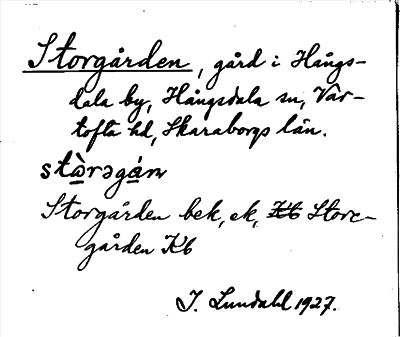 Storgården, gård i Hångs-
dala by, Hångsdala sn, Var-
tofta hd, Skaraborgs län.
stòrəgán
Storgården bek, ek, Kb Store-
gården Kb
J. Lundahl 1927.